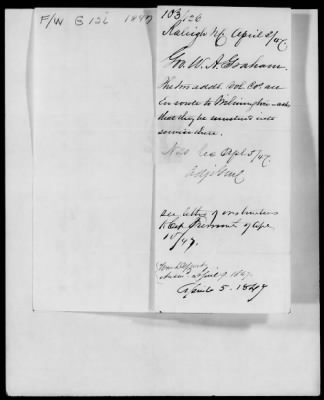 F/W G 126 1847
103/126
Raleigh NC April 2/47
Gov. W. A. Graham.
Two addl. Vol. Cos. are
en route to Wilmington - asks
that they be mustered into
service there.
Rec Apl 5/47.
Adjt Genl
see letter of instructions
to Capt of Apl
15/47.
April 9. 1847
April 5. 1847